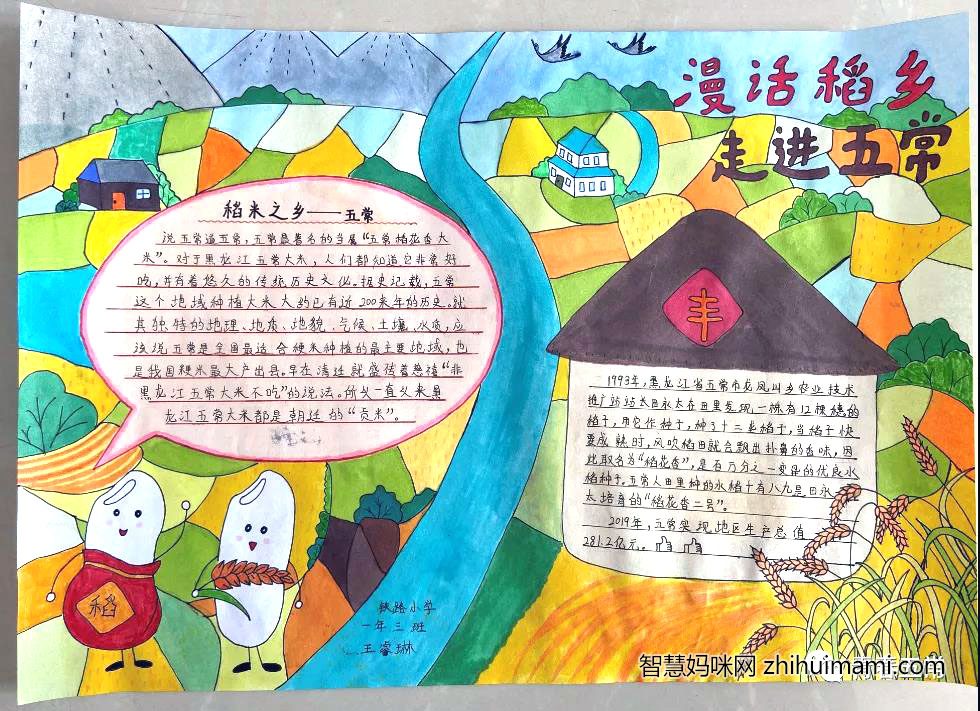 漫话稻乡
走进五常
稻米之乡——五常
说五常道五常，五常最著名的当属“五常稻花香大
米”。对于黑龙江五常大米，人们都知道它非常好
吃，并有着悠久的传统历史文化。据史记载，五常
这个地域种植大米大约已有近200来年的历史。就
其独特的地理、地质、地貌、气候、土壤、水质，应
该说五常是全国最适合粳米种植的最主要地域，也
是我国粳米最大产出县。早在清廷就盛传着慈禧“非
黑龙江五常大米不吃”的说法。所以一直以来黑
龙江五常大米都是朝廷的“贡米”。
丰
1993年，黑龙江省五常市龙凤山乡农业技术
推广站站长田永太在田里发现一株有12棵穗的
稻子，用它作种子，种了十三垄稻子，当稻子快
要成熟时，风吹稻田就会飘出扑鼻的香味，因
此取名为“稻花香”，是百万分之一变异的优良水
稻种子。五常人田里种的水稻十有八九是田永
太培育的“稻花香二号”。
2019年，五常实现地区生产总值
281.2亿元。
稻
铁路小学
一年三班
王睿琳
智慧妈咪网 zhihuimami.com